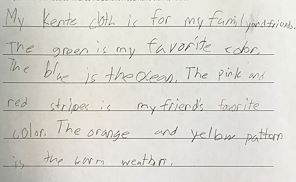 My Kente cloth is for my family and friends.
The green is my favorite color.
The blue is the ocean. The pink and
red stripes is my friend's favorite
color. The orange and yellow pattern
is the warm weather.